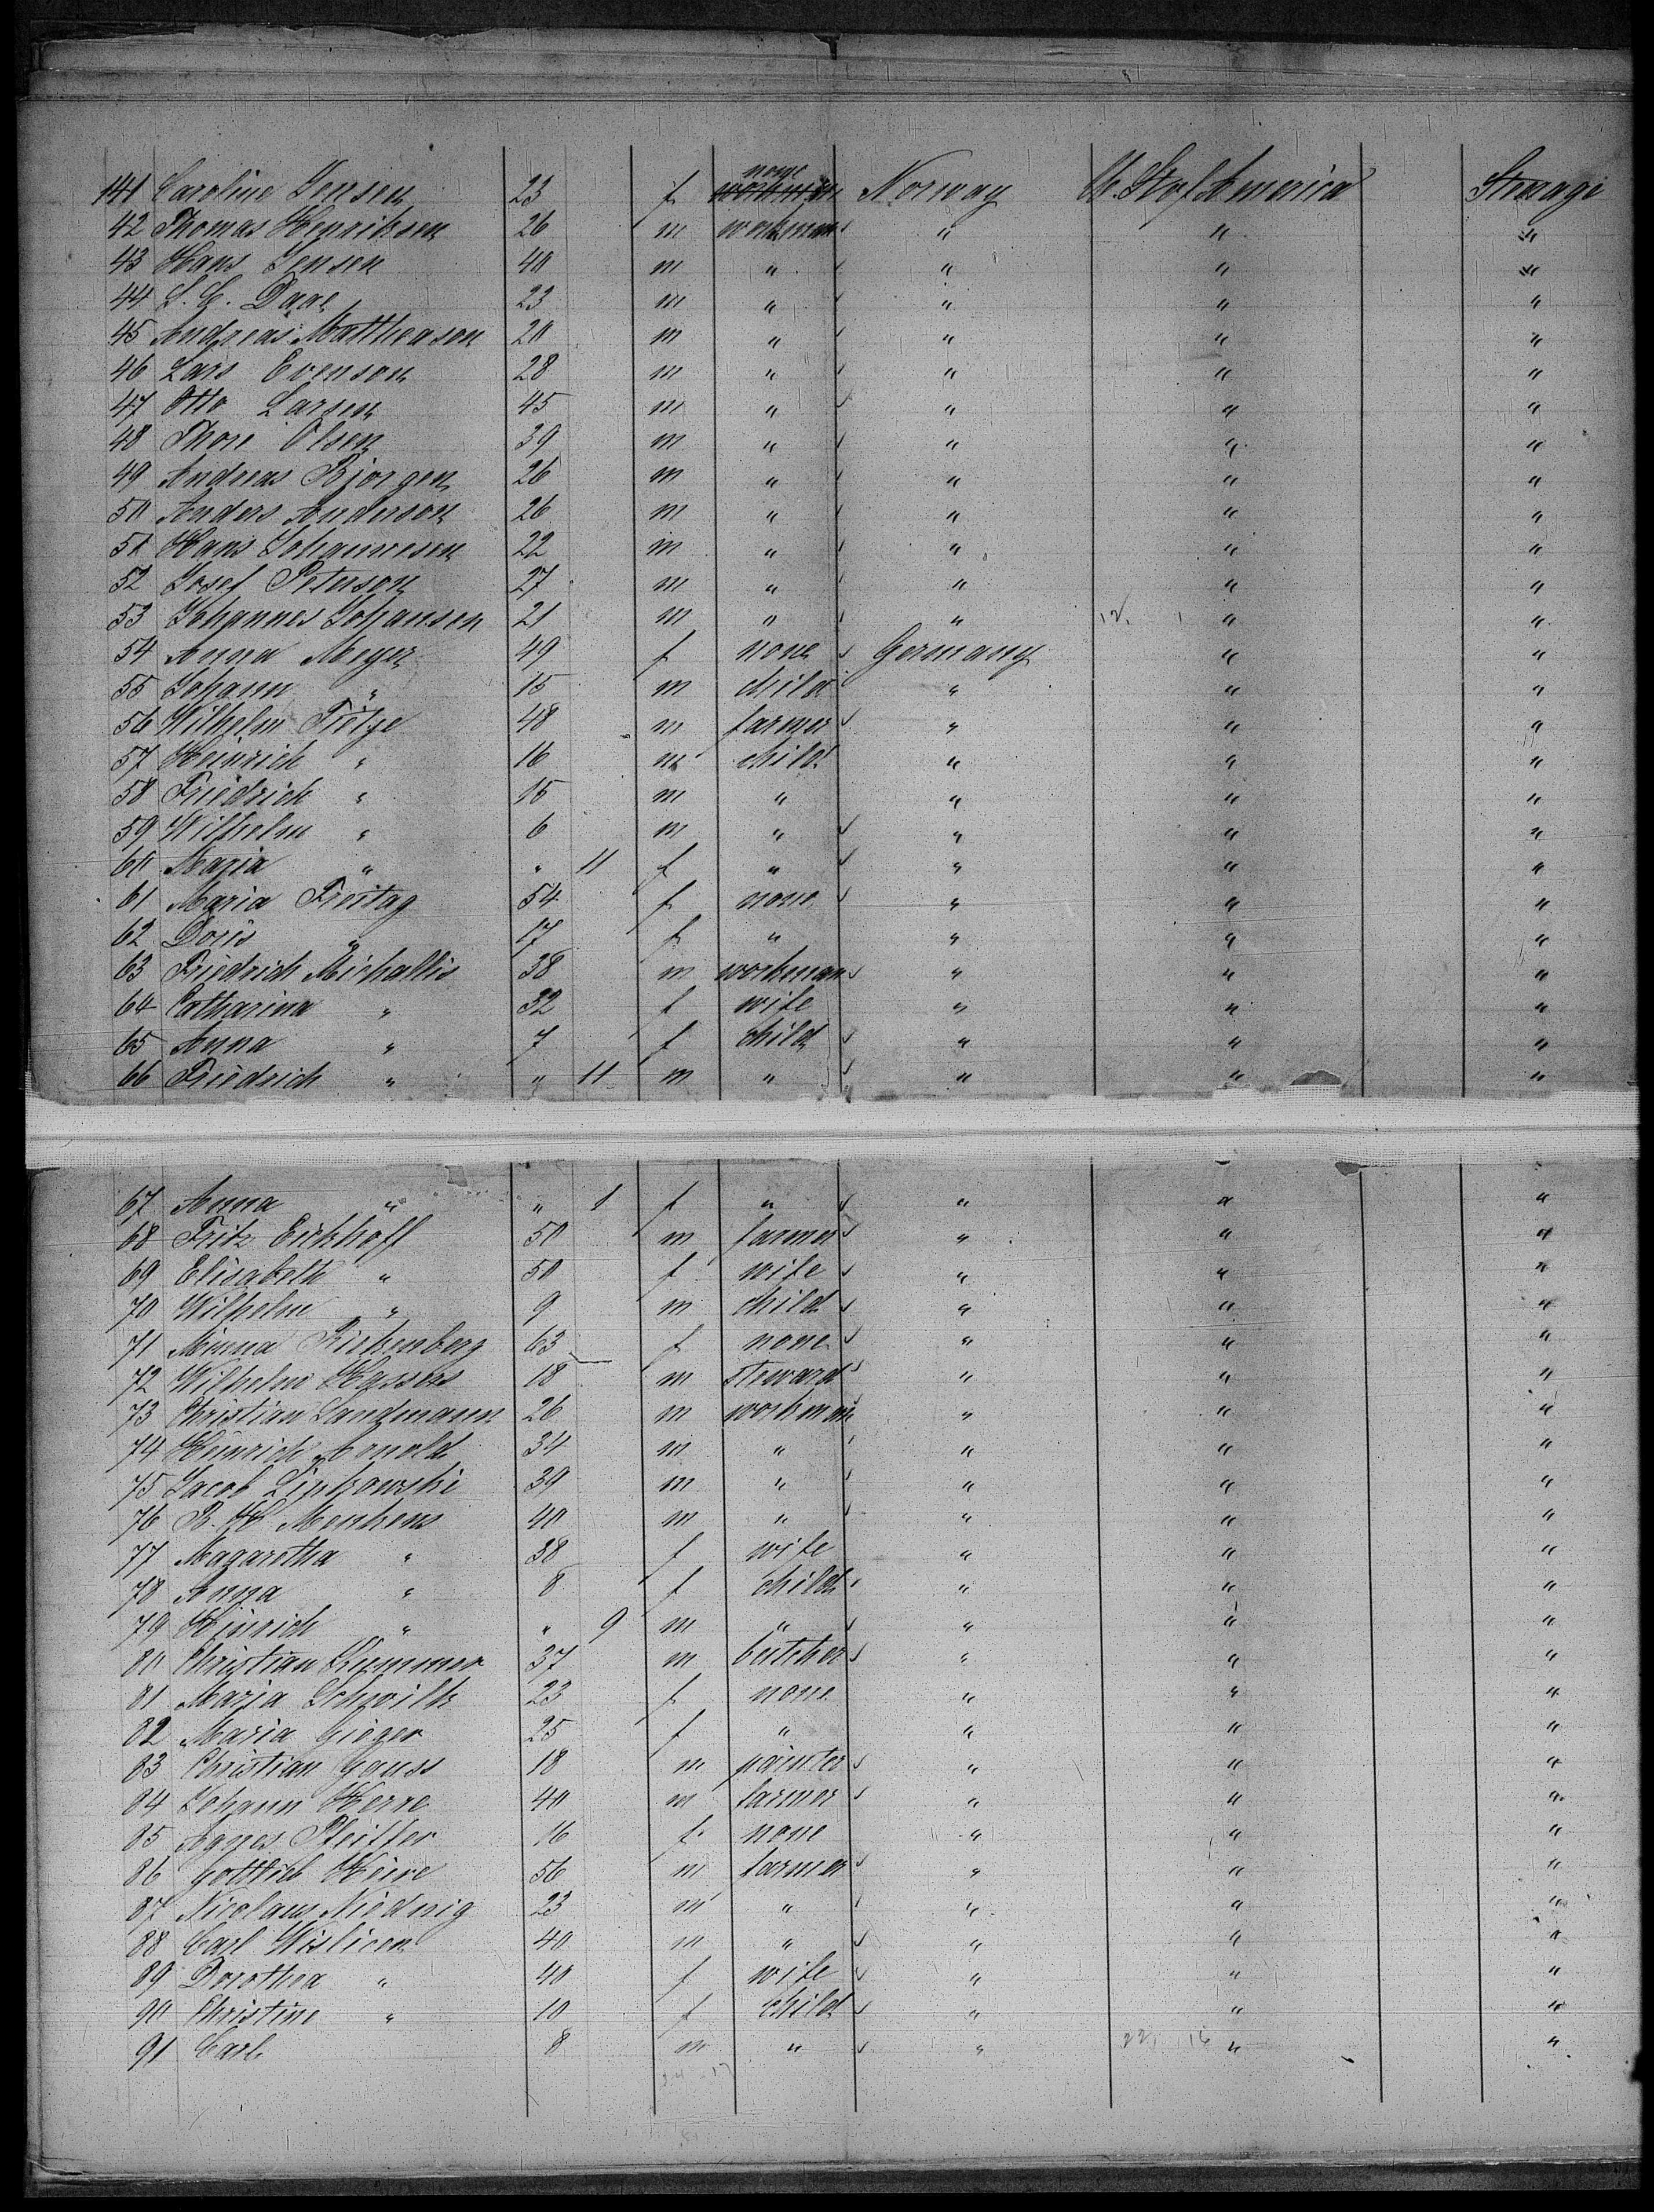 141 Caroline Jensen 23 f none workman Norway U. St of America Steerage
42 Thomas Henriksen 26 m workman " " "
43 Hans Jensen 40 m " " " "
44 L. C. Daae 23 m " " " "
45 Andreas Matheason 20 m " " " "
46 Lars Evenson 28 m " " " "
47 Otto Larsen 45 m " " " "
48 Thore Olsen 39 m " " " "
49 Andreas Bjorgen 26 m " " " "
50 Anders Anderson 26 m " " " "
51 Hans Johannesen 22 m " " " "
52 Josef Peterson 27 m " " " "
53 Johannes Johansen 21 m " " " "
54 Anna Meyer 49 f none Germany " "
55 Johann " 15 m child " " "
56 Wilhelm Tietze 48 m farmer " " "
57 Heinrich " 16 m child " " "
58 Friedrich " 15 m " " " "
59 Wilhelm " 6 m " " " "
60 Maria " " 11 f " " " "
61 Maria Freitag 54 f none " " "
62 Doris " 17 f " " " "
63 Friedrich Michallis 38 m workman " " "
64 Catharina " 32 f wife " " "
65 Anna " 7 f child " " "
66 Friedrich " " 11 m " " " "
67 Anna " " 1 f " " " "
68 Fritz Eickhoff 50 m farmer " " "
69 Elisabeth " 50 f wife " " "
70 Wilhelm " 9 m child " " "
71 Minna Rickenberg 63 f none " " "
72 Wilhelm Hassers 18 m steward " " "
73 Christian Landmann 26 m workman " " "
74 Heinrich Arnold 34 m " " " "
75 Jacob Lipkowski 39 m " " " "
76 B. H. Menkens 40 m " " " "
77 Magaretha " 38 f wife " " "
78 Anna " 8 f child " " "
79 Hinrich " " 9 m " " " "
80 Christian Kummer 37 m butcher " " "
81 Maria Schwilk 23 f none " " "
82 Maria Gieger 25 f " " " "
83 Christian Gauss 18 m painter " " "
84 Johann Herre 40 m farmer " " "
85 Agnes Pfeiffer 16 f none " " "
86 Gottlieb Heire 56 m farmer " " "
87 Nicolaus Niednig 23 m " " " "
88 Carl Wislicen 40 m " " " "
89 Dorothea " 40 f wife " " "
90 Christine " 10 f child " " "
91 Carl 8 m " " " "